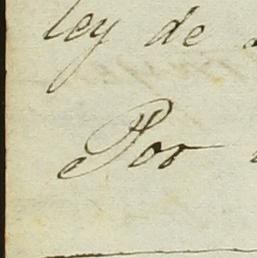 ley de
Por